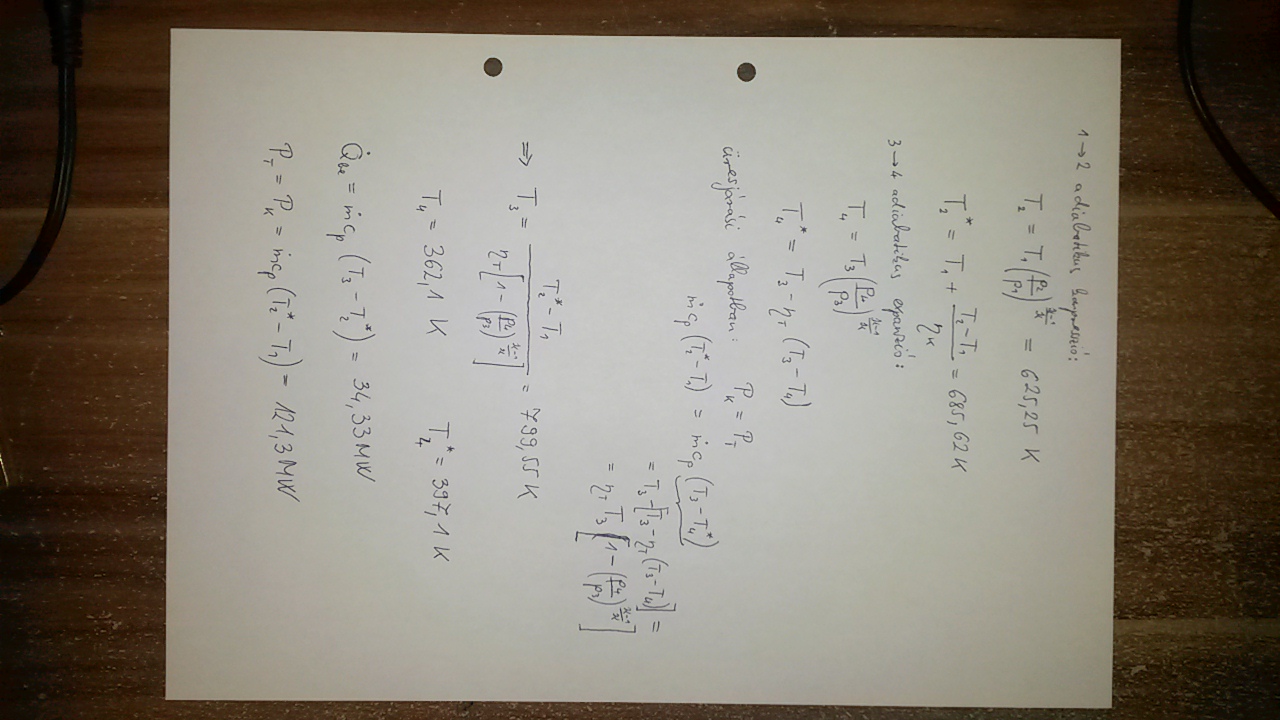 1→2 adiabatikus kompresszió:
T₂ = T₁ (p₂/p₁)^((ϰ-1)/ϰ) = 625,25 K
T₂* = T₁ + (T₂ - T₁)/η_K = 685,62 K
3→4 adiabatikus expanzió:
T₄ = T₃ (p₄/p₃)^((ϰ-1)/ϰ)
T₄* = T₃ - η_T (T₃ - T₄)
üresjárási állapotban: P_K = P_T
ṁc_p (T₂* - T₁) = ṁc_p (T₃ - T₄*)
= T₃ - [T₃ - η_T (T₃ - T₄)] =
= η_T T₃ [1 - (p₄/p₃)^((ϰ-1)/ϰ)]
⇒ T₃ = (T₂* - T₁)/(η_T [1 - (p₄/p₃)^((ϰ-1)/ϰ)]) = 799,55 K
T₄ = 362,1 K T₄* = 397,1 K
Q̇_be = ṁc_p (T₃ - T₂*) = 34,33 MW
P_T = P_K = ṁc_p (T₂* - T₁) = 121,3 MW